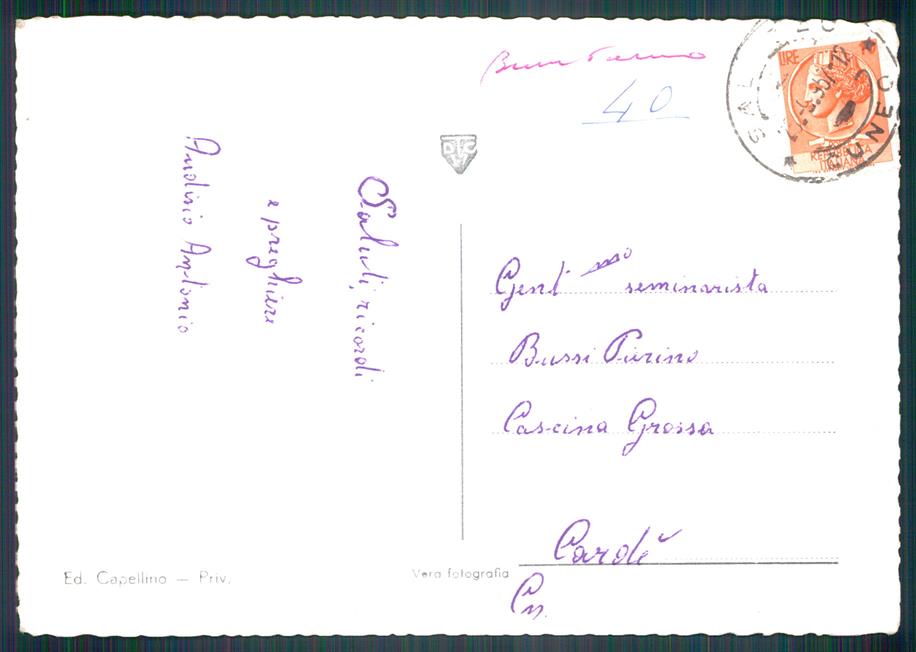 40
LIRE
REPUBBLICA
ITALIANA
CUNEO
Saluti, ricordi
e preghiere
Audisio Antonio
Gent sso seminarista
Bussi Pierino
Cascina Grossa
Cardè
Cn.
Ed. Capellino — Priv.
Vera fotografia